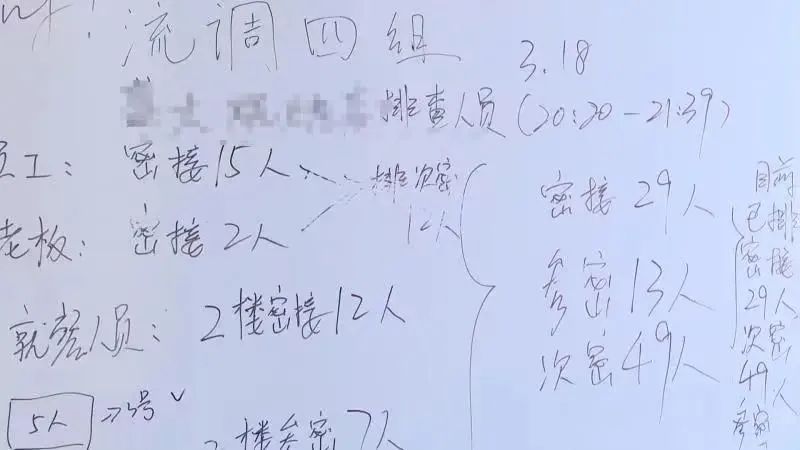 流调四组
3.18
排查人员 (20:20-21:39)
员工: 密接15人
排次密
12人
老板: 密接2人
就餐人员: 2楼密接12人
5人
2楼参密7人
密接29人
参密13人
次密49人
目前
已排
密接
29人
次密
49人
参密